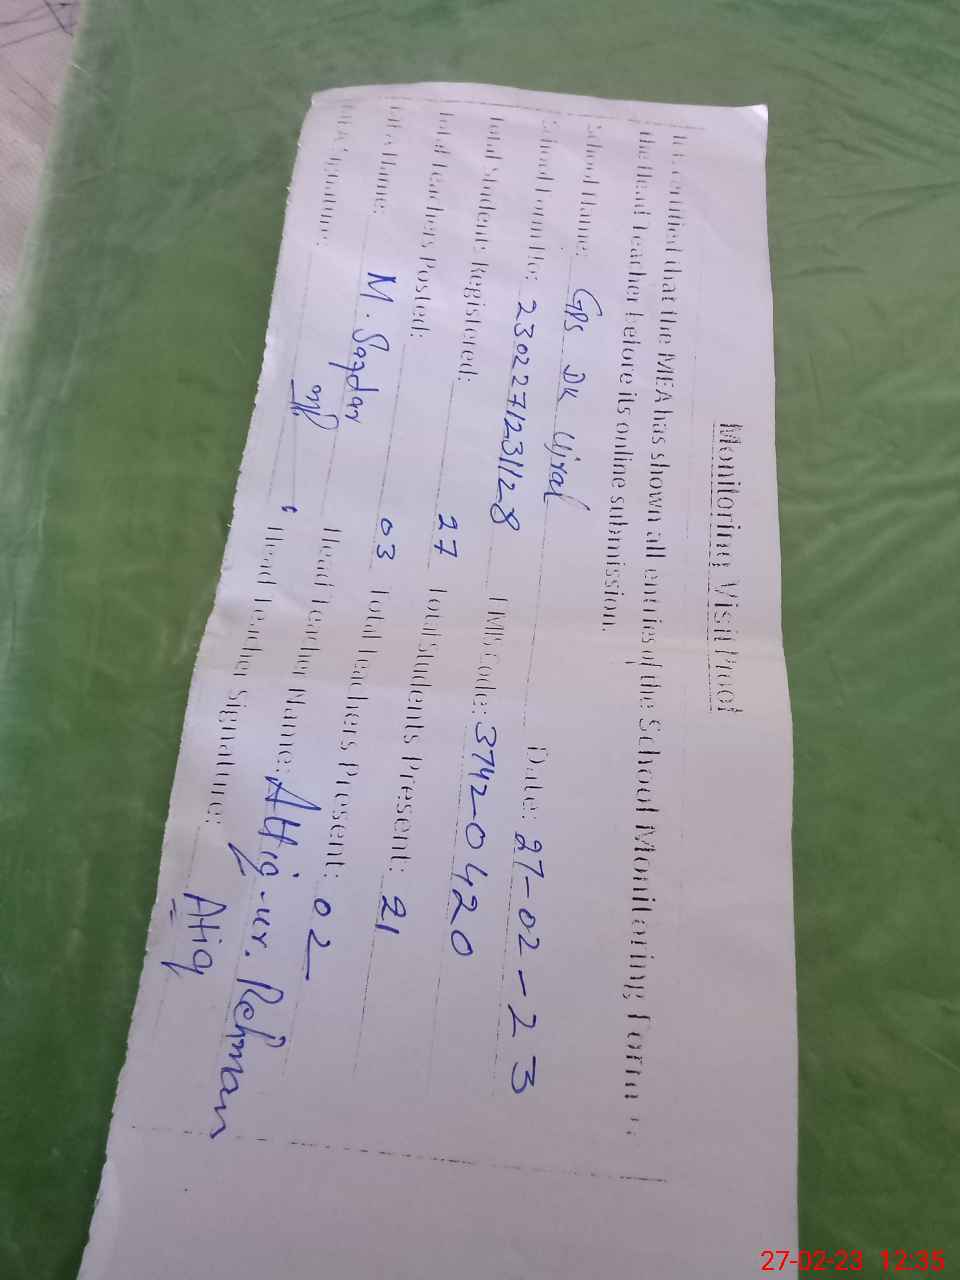 Monitoring Visit Proof
It is certified that the MEA has shown all entries of the School Monitoring Form to
the Head Teacher before its online submission.
School Name: GPS DK Ujral Date: 27-02-23
School Form No: 2302271231128 EMIS Code: 37420420
Total Students Registered: 27 Total Students Present: 21
Total Teachers Posted: 03 Total Teachers Present: 02
MEA Name: M. Head Teacher Name: Attiq-ur-Rehman
MEA Signature: Head Teacher Signature: Atiq
27-02-23 12:35